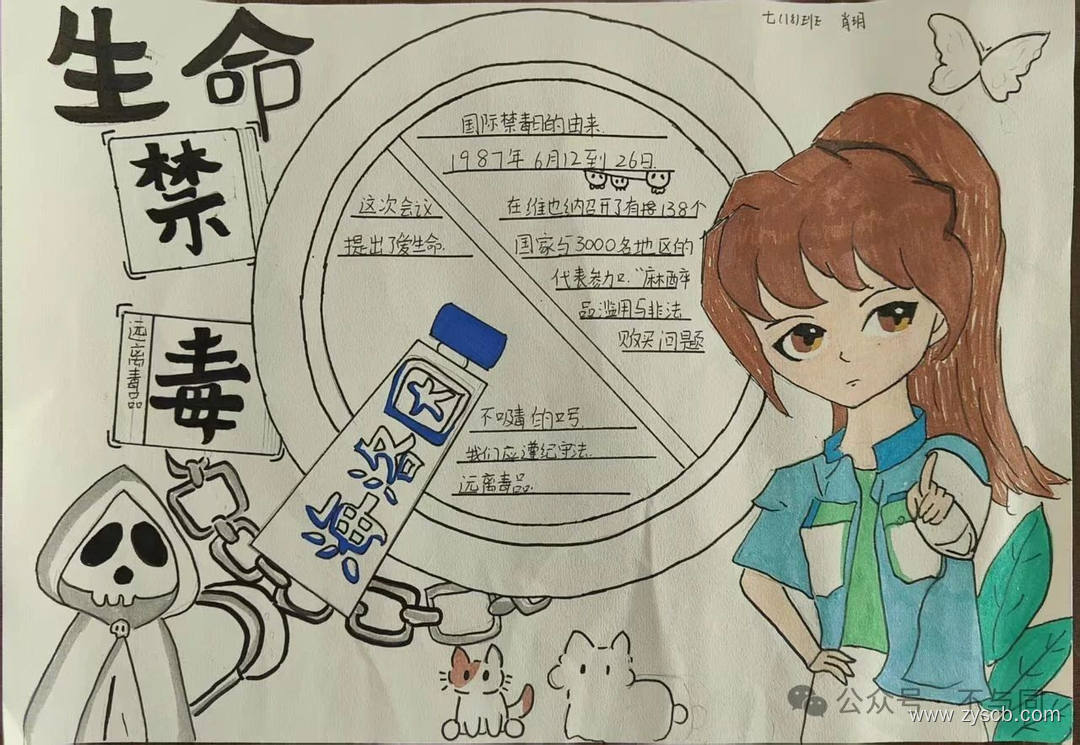 生命
七(18)班 肖玥
禁
毒
远离毒品
国际禁毒日的由来.
1987年6月12到26日.
在维也纳召开了有接138个
国家与3000名地区的
代表参加."麻醉
品滥用与非法
贩买问题
这次会议
提出了爱生命.
不吸毒的口号
我们应遵纪守法.
远离毒品.
海洛因
公众号·不与同
www.zyscb.com